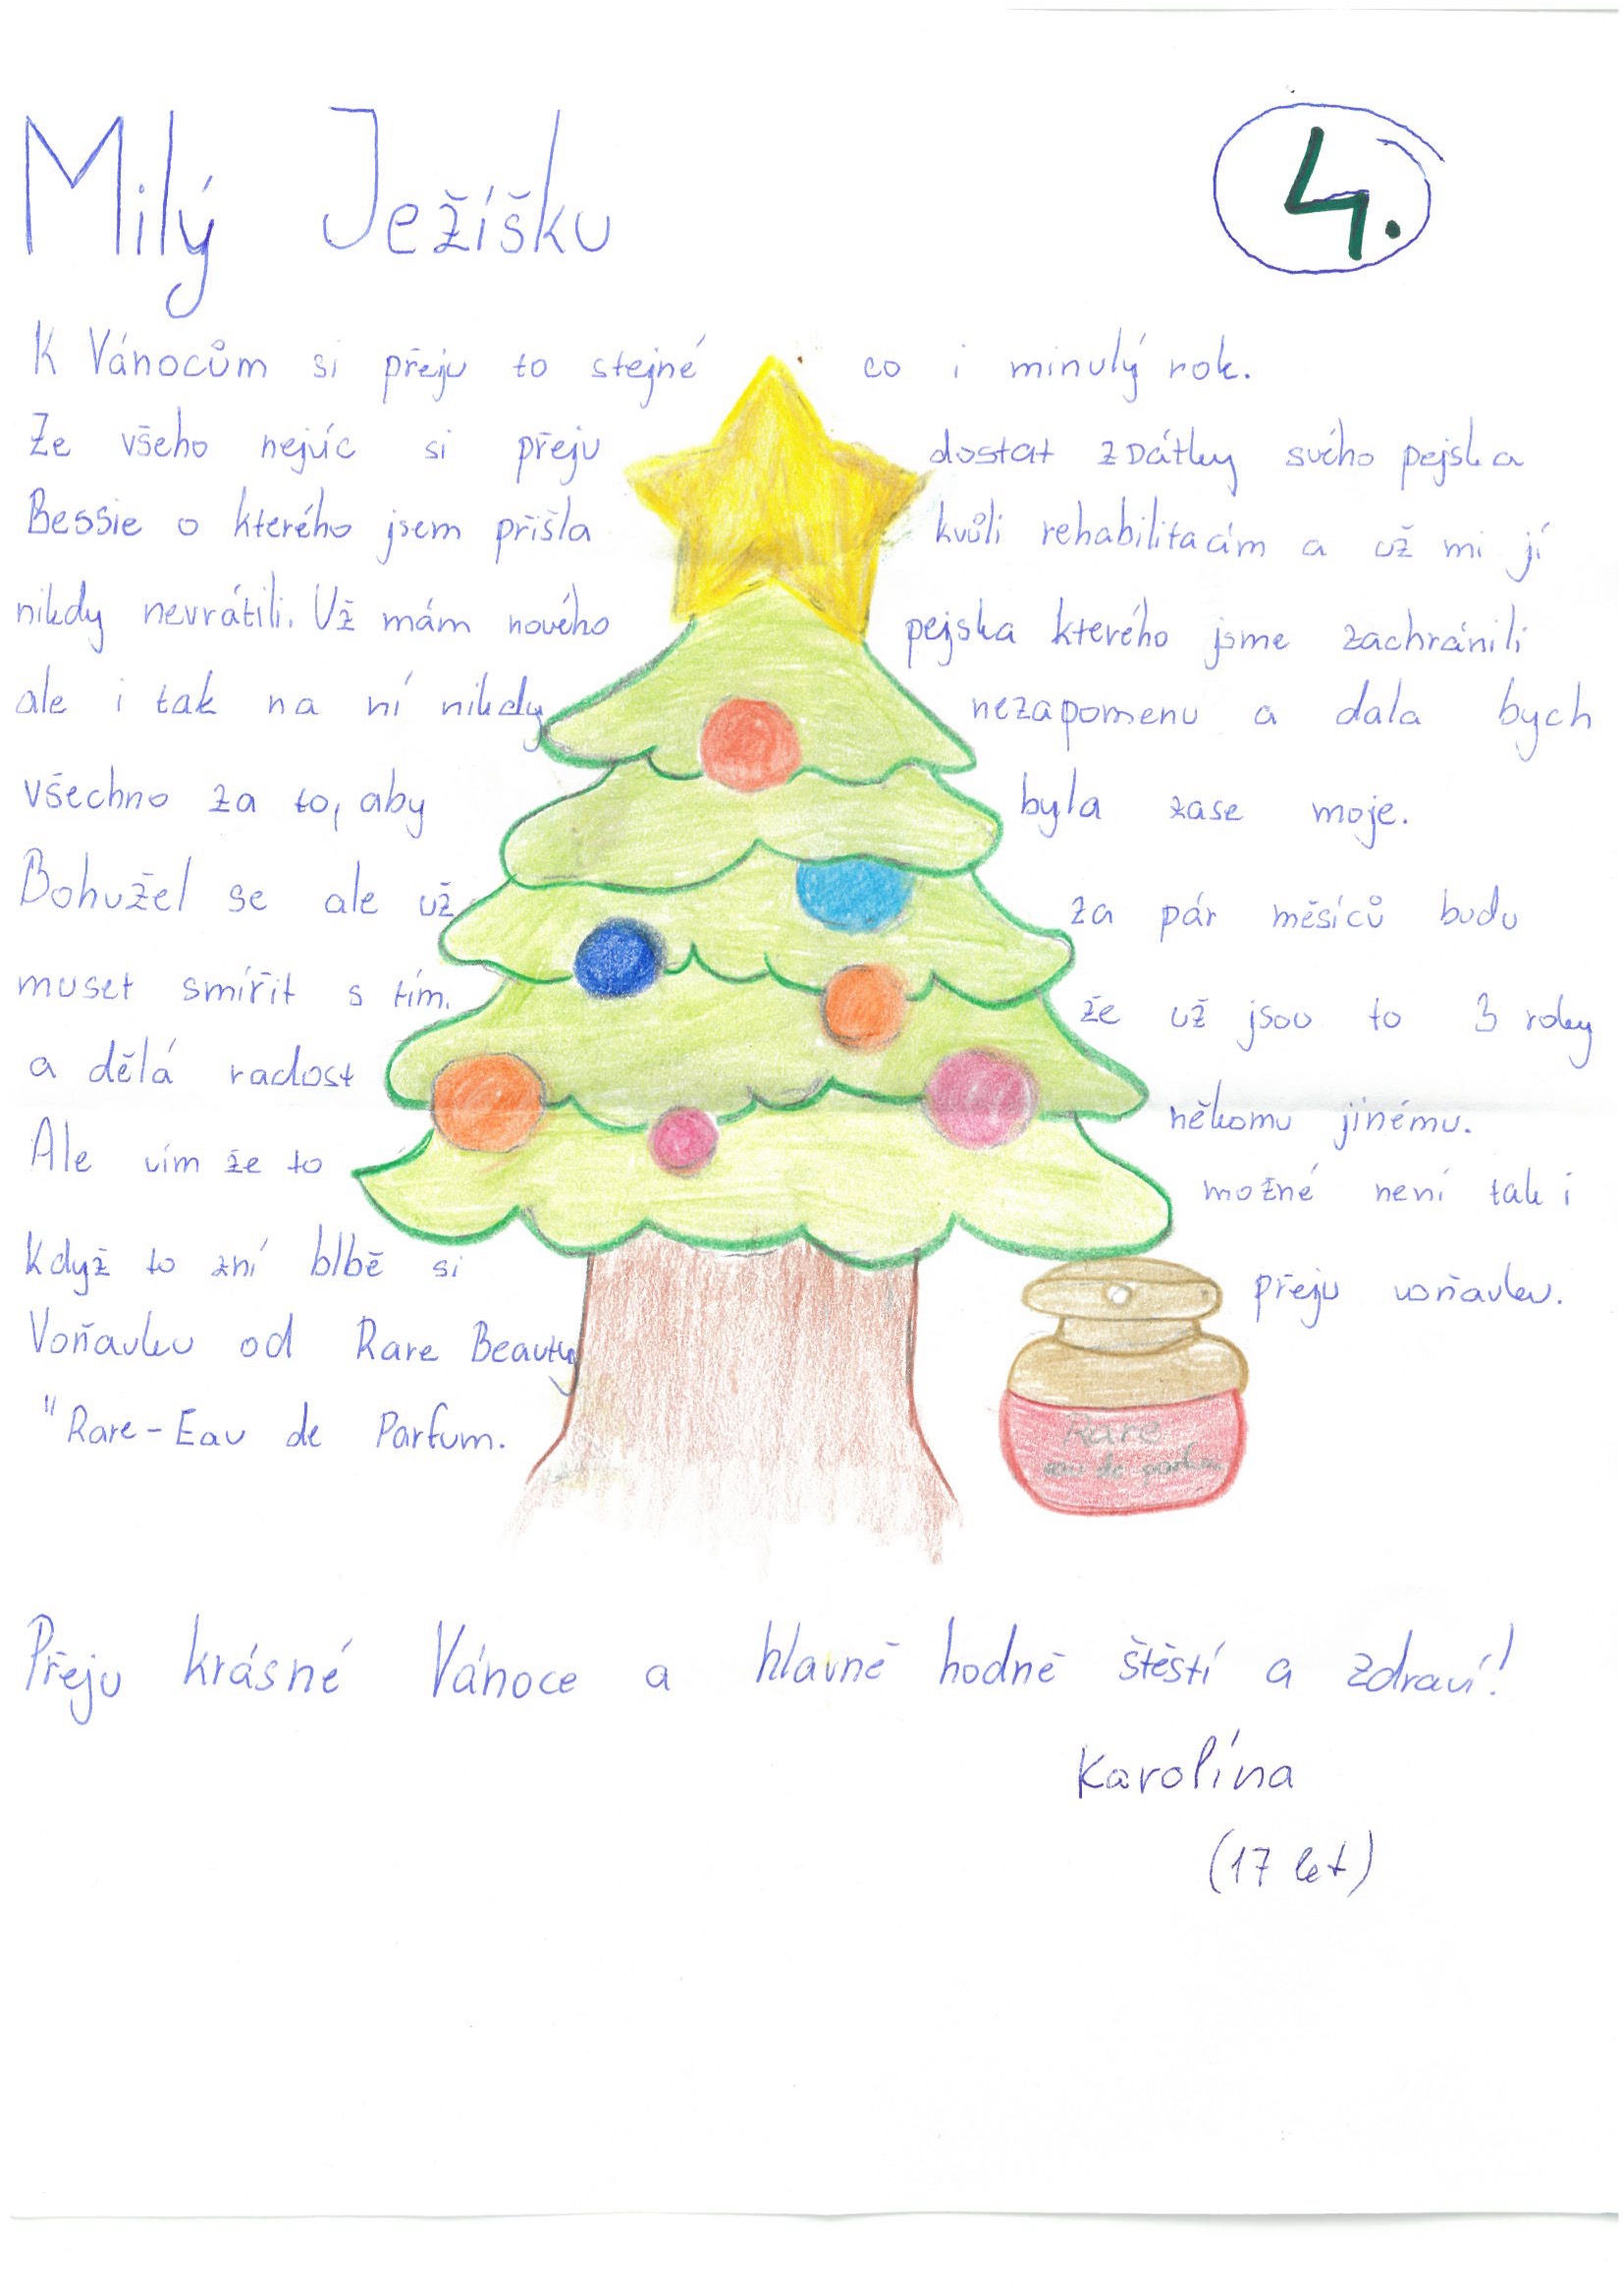 Milý Ježíšku
4.
K Vánocům si přeju to stejné co i minulý rok.
Ze všeho nejvíc si přeju dostat zpátky svého pejska
Bessie o kterého jsem přišla kvůli rehabilitacím a už mi jí
nikdy nevrátili. Už mám nového pejska kterého jsme zachránili
ale i tak na ní nikdy nezapomenu a dala bych
všechno za to, aby byla zase moje.
Bohužel se ale už za pár měsíců budu
muset smířit s tím. že už jsou to 3 roky
a dělá radost někomu jinému.
Ale vím že to možné není tak i
když to zní blbě si přeju voňavku.
Voňavku od Rare Beauty
"Rare-Eau de Parfum.
Rare
eau de parfum
Přeju krásné Vánoce a hlavně hodně štěstí a zdraví!
Karolína
(17 let)